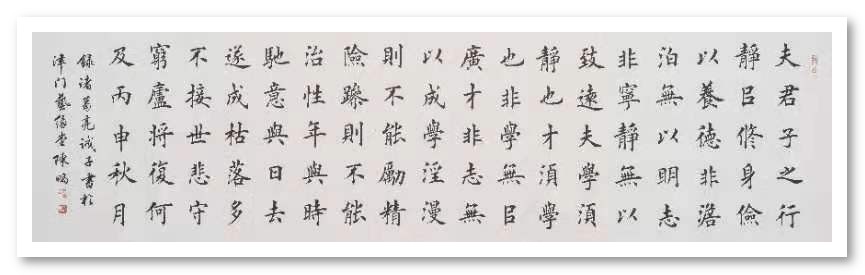 夫君子之行
靜㠯修身儉
以養德非澹
泊無以明志
非寧靜無以
致遠夫學須
靜也才須學
也非學無㠯
廣才非志無
以成學淫漫
則不能勵精
險躁則不能
治性年與時
馳意與日去
遂成枯落多
不接世悲守
窮廬將復何
及丙申秋月
録诸葛亮诫子書於
津门藝堂陳